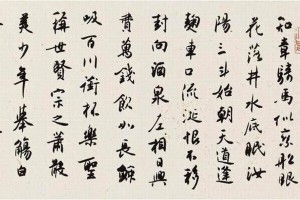 知章騎馬似乘船眼
花落井水底眠汝
陽三斗始朝天道逢
麴車口流涎恨不移
封向酒泉左相日興
費萬錢飲如長鯨
吸百川銜杯樂聖
稱世賢宗之蕭散
美少年舉觴白